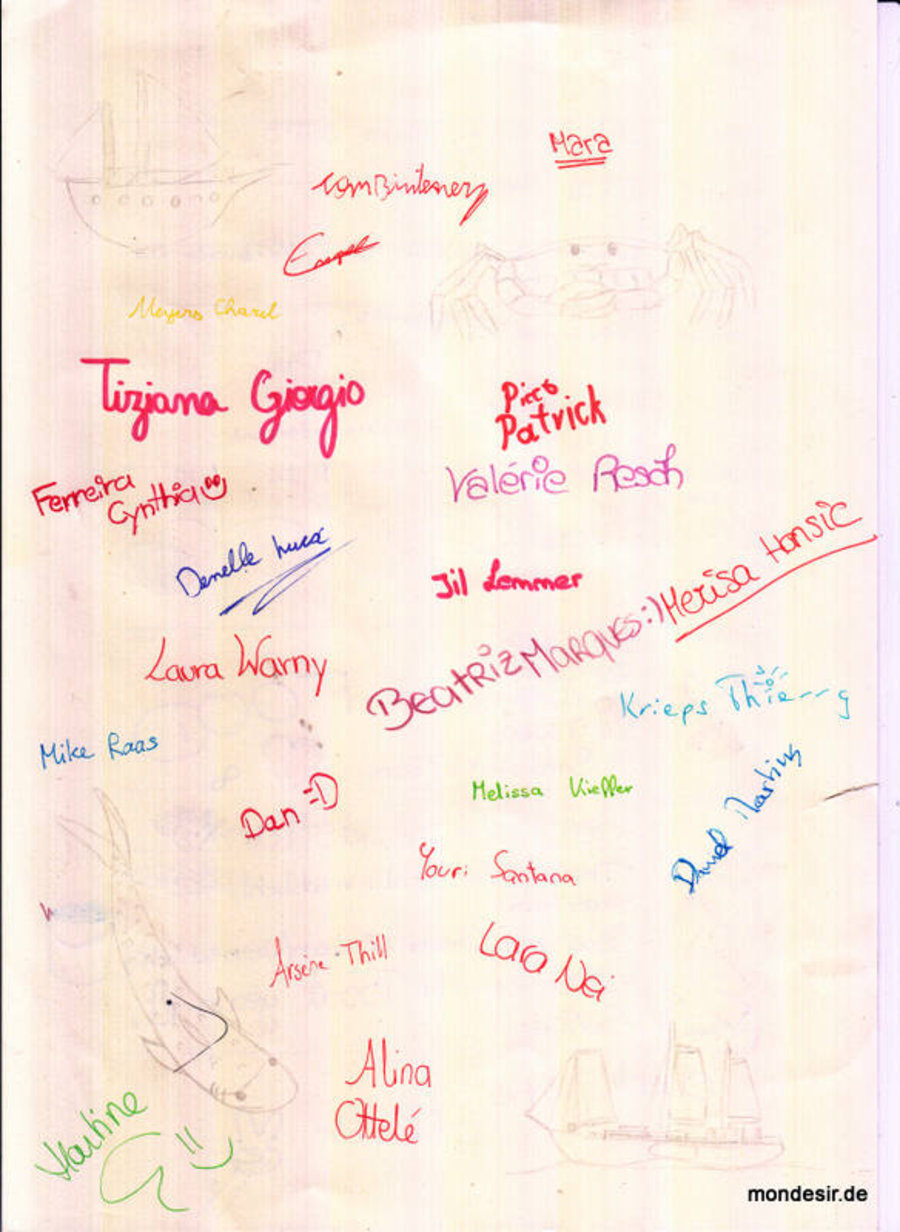 Mara
Tom Bintener
Meyers Charel
Tiziana Giorgio
Picco
Patrick
Valérie Resch
Ferreira
Cynthia
Denelle Luca
Jil Lemmer
Merisa Hansic
Beatriz Marques :)
Laura Warny
Krieps Thierry
Mike Raas
Dan =D
Melissa Kieffer
Daniel Martins
Youri Santana
Arsène Thill
Lara Nei
Alina
Ottelé
Martine
mondesir.de